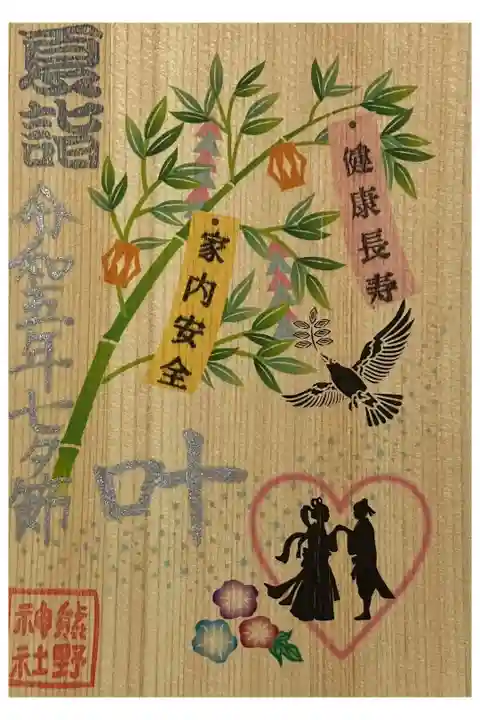 夏詣
令和五年七夕節
健康長寿
家内安全
叶
熊野
神社